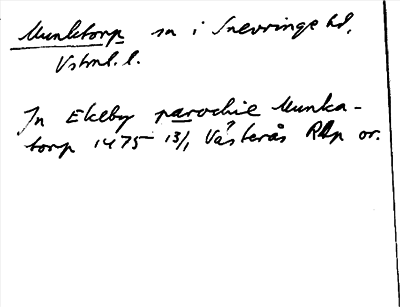 Munktorp sn i Snevringe hd,
Vstml. l.
In Ekeby parochie Munka-
torp 1475 13/1 Västerås RAp or.